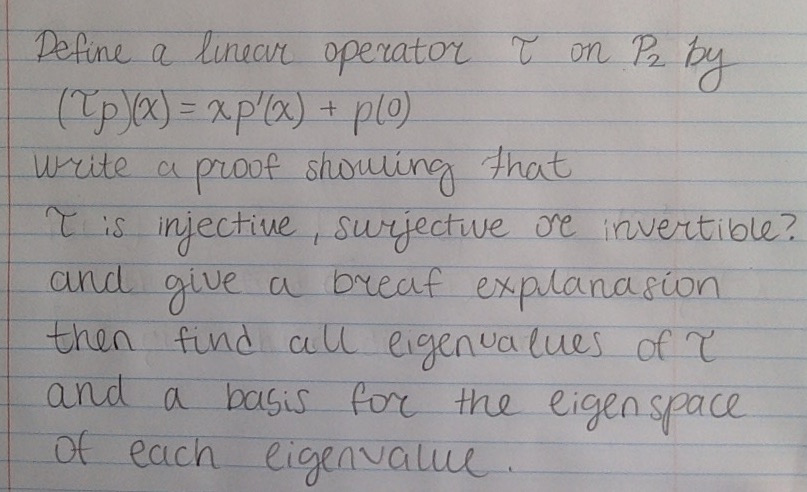 Define a linear operator τ on P₂ by
(τp)(x) = xp'(x) + p(0)
write a proof showing that
τ is injective, surjective or invertible?
and give a breaf explanasion
then find all eigenvalues of τ
and a basis for the eigenspace
of each eigenvalue.